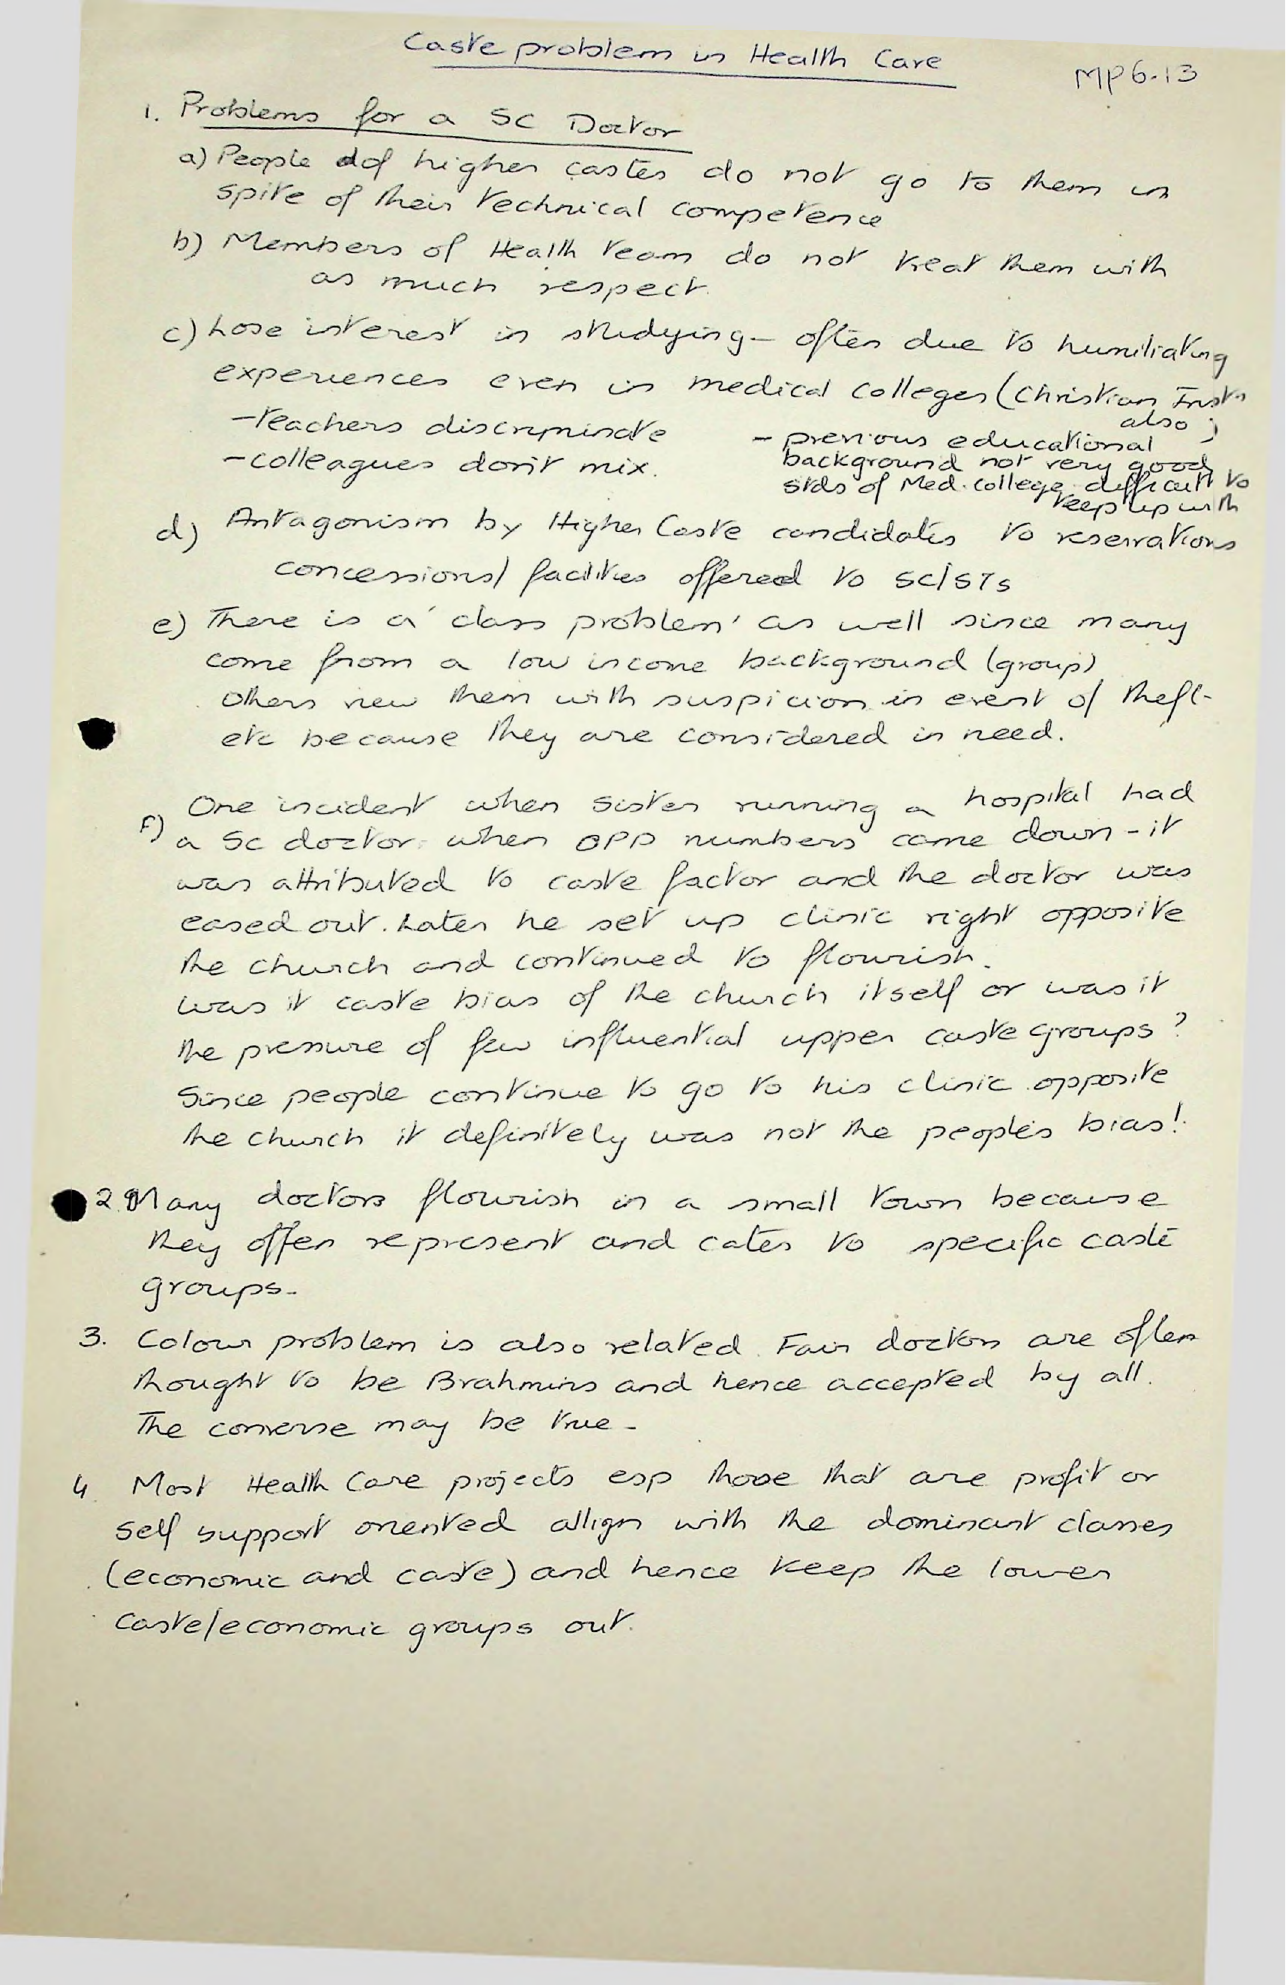 Caste problem in Health Care
MP6.13
1. Problems for a SC Doctor
a) People of higher castes do not go to them in
spite of their technical competence
b) Members of Health team do not treat them with
as much respect.
c) Lose interest in studying - often due to humiliating
experiences even in medical colleges (Christian Instn
also)
- teachers discriminate
- colleagues don't mix.
- previous educational
background not very good
stds of Med. college difficult to
keep up with
d) Antagonism by Higher Caste candidates to reservations
concessions/ facilities offered to SC/STs
e) There is a 'class problem' as well since many
come from a low income background (group)
Others view them with suspicion in event of theft-
etc because they are considered in need.
f) One incident when sister running a hospital had
a SC doctor. when OPD numbers came down - it
was attributed to caste factor and the doctor was
eased out. Later he set up clinic right opposite
the church and continued to flourish.
Was it caste bias of the church itself or was it
the pressure of few influential upper caste groups?
Since people continue to go to his clinic opposite
the church it definitely was not the people's bias!
2. Many doctors flourish in a small town because
they offer represent and cater to specific caste
groups-
3. Colour problem is also related. Fair doctors are often
thought to be Brahmins and hence accepted by all.
The converse may be true -
4. Most Health Care projects esp those that are profit or
self support oriented allign with the dominant classes
(economic and caste) and hence keep the lower
caste/economic groups out.